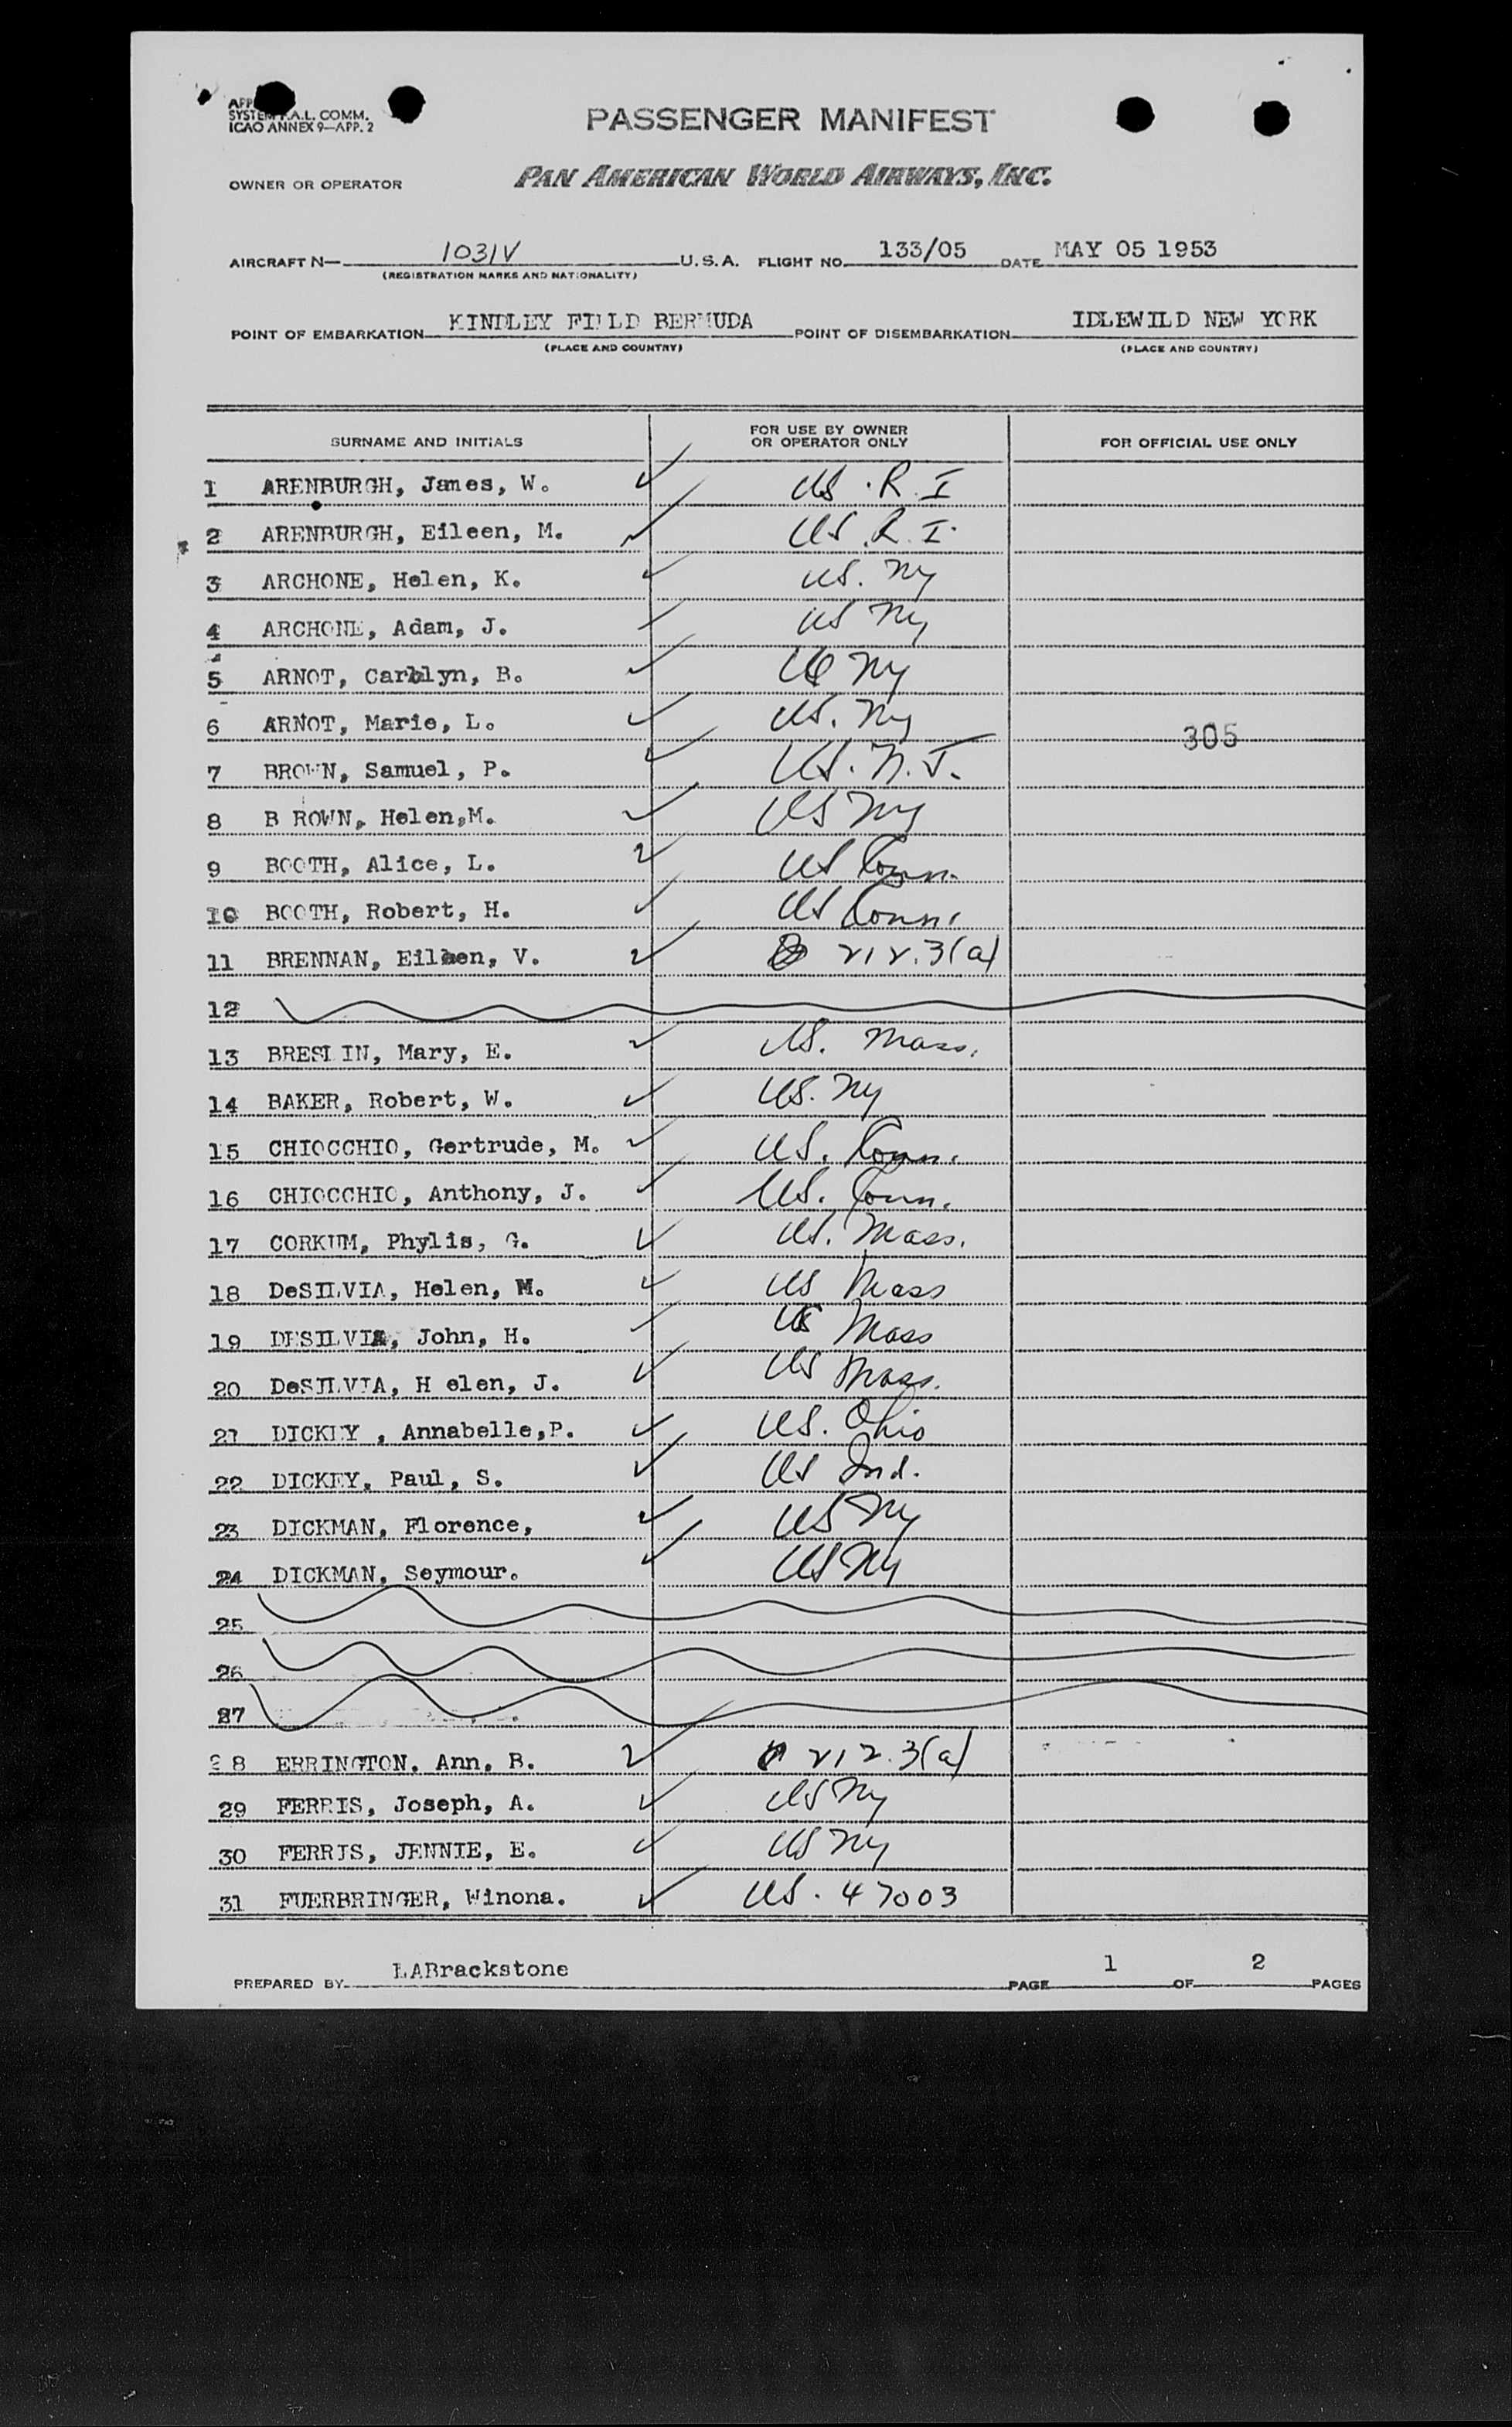 SYSTEM F.A.L. COMM.
ICAO ANNEX 9—APP. 2
PASSENGER MANIFEST
OWNER OR OPERATOR PAN AMERICAN WORLD AIRWAYS, INC.
AIRCRAFT N— 1031V U.S.A. FLIGHT NO. 133/05 DATE MAY 05 1953
(REGISTRATION MARKS AND NATIONALITY)
POINT OF EMBARKATION KINDLEY FIELD BERMUDA POINT OF DISEMBARKATION IDLEWILD NEW YORK
(PLACE AND COUNTRY) (PLACE AND COUNTRY)
SURNAME AND INITIALS FOR USE BY OWNER OR OPERATOR ONLY FOR OFFICIAL USE ONLY
1 ARENBURGH, James, W. US. R. I
2 ARENBURGH, Eileen, M. US. R. I.
3 ARCHONE, Helen, K. US. NY
4 ARCHONE, Adam, J. US NY
5 ARNOT, Carolyn, B. US NY
6 ARNOT, Marie, L. US. NY
305
7 BROWN, Samuel, P. US. N. J.
8 B ROWN, Helen,M. US NY
9 BOOTH, Alice, L. US Conn.
10 BOOTH, Robert, H. US Conn.
11 BRENNAN, Eileen, V. 212.3(a)
12
13 BRESLIN, Mary, E. US. Mass.
14 BAKER, Robert, W. US. NY
15 CHIOCCHIO, Gertrude, M. US. Conn.
16 CHIOCCHIO, Anthony, J. US. Conn.
17 CORKUM, Phylis, G. US. Mass.
18 DeSILVIA, Helen, M. US Mass
19 DESILVIA, John, H. US Mass
20 DeSILVIA, H elen, J. US Mass.
21 DICKEY , Annabelle,P. US. Ohio
22 DICKEY, Paul, S. US Ind.
23 DICKMAN, Florence, US NY
24 DICKMAN, Seymour. US NY
25
26
27
28 ERRINGTON, Ann, B. 212.3(a)
29 FERRIS, Joseph, A. US NY
30 FERRIS, JENNIE, E. US NY
31 FUERBRINGER, Winona. US. 47003
PREPARED BY LABrackstone PAGE 1 OF 2 PAGES